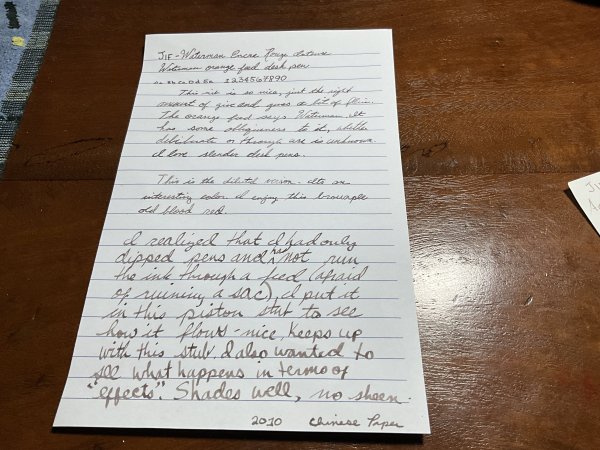 JIF - Waterman Encre Rouge
Waterman orange feed desk pen
Aa Bb Cc Dd Ee 1234567890
This nib is so nice, just the right
amount of give and gives a bit of
The orange feed says Waterman. It
has some obliqueness to it, whether
deliberate or through use is unknown.
I love slender desk pens.
This is the version. Its an
interesting color. I enjoy this
old blood red.
I realized that I had only
dipped pens and had not run
the ink through a feed (afraid
of ruining a sac), I put it
in this piston stub to see
how it flows - nice, keeps up
with this stub. I also wanted to
see what happens in terms of
"effects". Shades well, no sheen.
2010 Chinese Paper
JIF